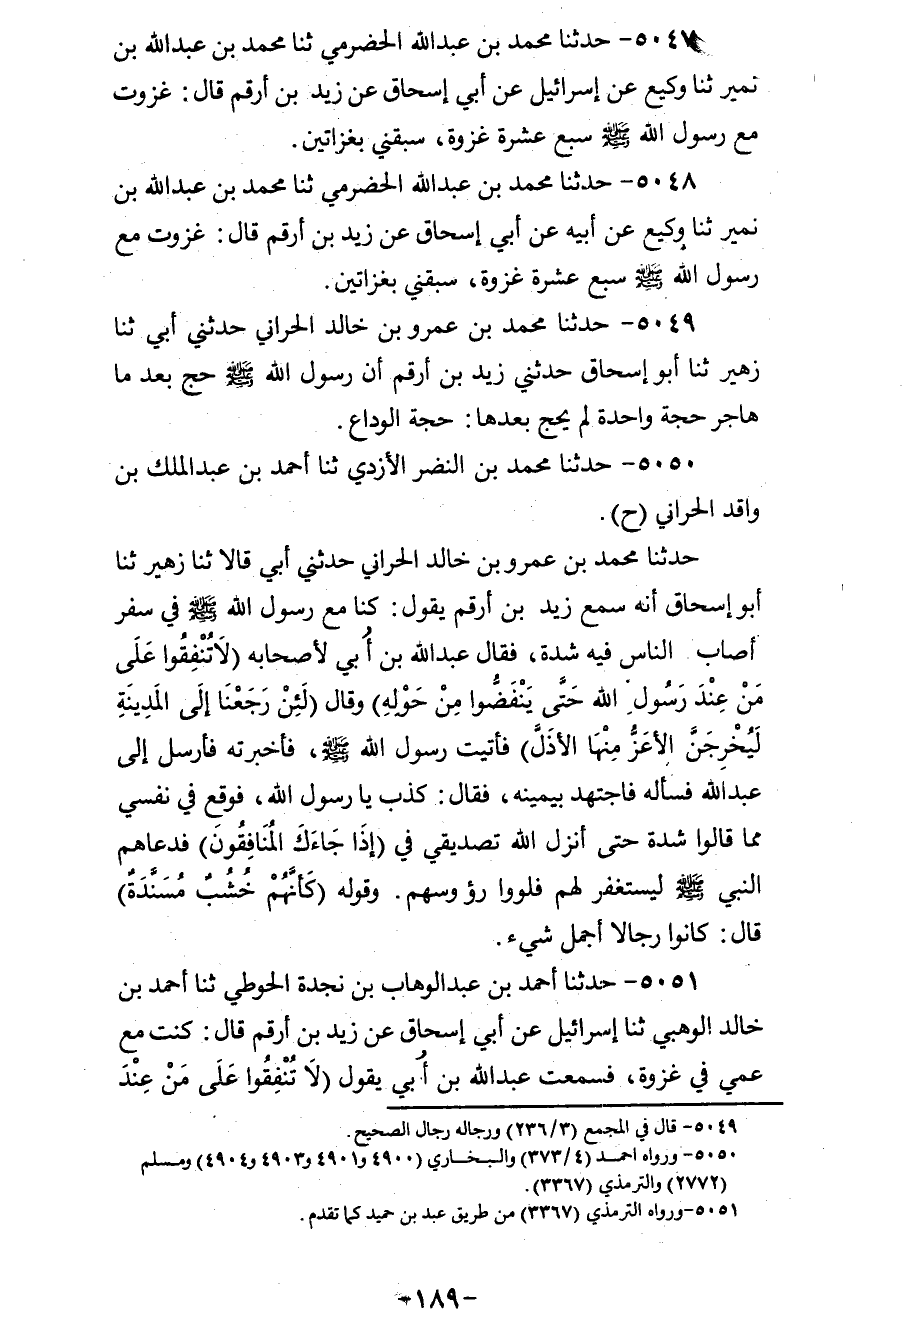 ٥٠٤٧- حدثنا محمد بن عبدالله الحضرمي ثنا محمد بن عبدالله بن
نمير ثنا وكيع عن إسرائيل عن أبي إسحاق عن زيد بن أرقم قال: غزوت
مع رسول الله ﷺ سبع عشرة غزوة، سبقني بغزاتين.
٥٠٤٨- حدثنا محمد بن عبدالله الحضرمي ثنا محمد بن عبدالله بن
نمير ثنا وكيع عن أبيه عن أبي إسحاق عن زيد بن أرقم قال: غزوت مع
رسول الله ﷺ سبع عشرة غزوة، سبقني بغزاتين.
٥٠٤٩- حدثنا محمد بن عمرو بن خالد الحراني حدثني أبي ثنا
زهير ثنا أبو إسحاق حدثني زيد بن أرقم أن رسول الله ﷺ حج بعد ما
هاجر حجة واحدة لم يحج بعدها: حجة الوداع.
٥٠٥٠- حدثنا محمد بن النضر الأزدي ثنا أحمد بن عبدالملك بن
واقد الحراني (ح).
حدثنا محمد بن عمرو بن خالد الحراني حدثني أبي قالا ثنا زهير ثنا
أبو إسحاق أنه سمع زيد بن أرقم يقول: كنا مع رسول الله ﷺ في سفر
أصاب الناس فيه شدة، فقال عبدالله بن أُبي لأصحابه (لَاتُنْفِقُوا عَلَى
مَنْ عِنْدَ رَسُولِ الله حَتَّى يَنْفَضُّوا مِنْ حَوْلِهِ) وقال (لَئِنْ رَجَعْنَا إلَى المَدِينَةِ
لَيُخْرِجَنَّ الأعَزُّ مِنْهَا الأذَلَّ) فأتيت رسول الله ﷺ، فأخبرته فأرسل إلى
عبدالله فسأله فاجتهد بيمينه، فقال: كذب يا رسول الله، فوقع في نفسي
مما قالوا شدة حتى أنزل الله تصديقي في (إذَا جَاءَكَ المُنَافِقُونَ) فدعاهم
النبي ﷺ ليستغفر لهم فلووا رؤوسهم. وقوله (كَأنَّهُمْ خُشُبٌ مُسَنَّدَةٌ)
قال: كانوا رجالا أجمل شيء.
٥٠٥١- حدثنا أحمد بن عبدالوهاب بن نجدة الحوطي ثنا أحمد بن
خالد الوهبي ثنا إسرائيل عن أبي إسحاق عن زيد بن أرقم قال: كنت مع
عمي في غزوة، فسمعت عبدالله بن أُبي يقول (لَا تُنْفِقُوا عَلَى مَنْ عِنْدَ
٥٠٤٩- قال في المجمع (٢٣٦/٣) ورجاله رجال الصحيح.
٥٠٥٠- ورواه احمد (٣٧٣/٤) والبخاري (٤٩٠٠ و٤٩٠١ و٤٩٠٣ و٤٩٠٤) ومسلم
(٢٧٧٢) والترمذي (٣٣٦٧).
٥٠٥١-ورواه الترمذي (٣٣٦٧) من طريق عبد بن حميد كما تقدم.
-١٨٩-